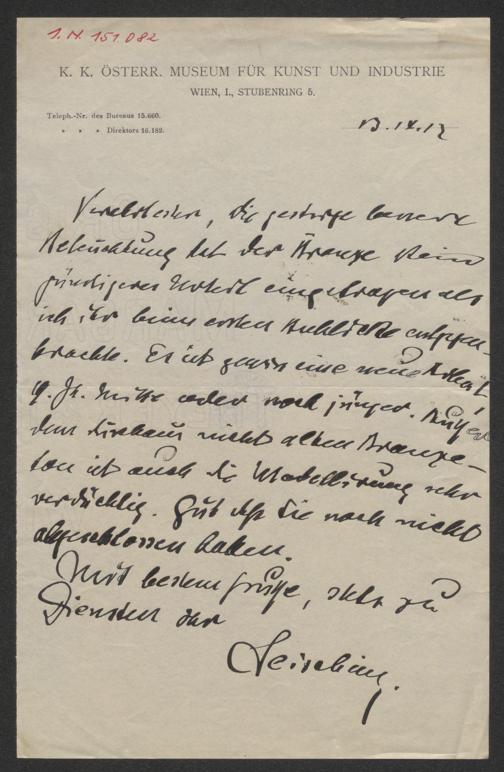 I. N. 151.082
K. K. ÖSTERR. MUSEUM FÜR KUNST UND INDUSTRIE
WIEN, I., STUBENRING 5.
Teleph.-Nr. des Bureaus 15.660.
" " " Direktors 16.182.
Verehrtester, die gestrige bessere
Beleuchtung hat der Bronze kein
günstigeres Urteil eingetragen als
ich ihr beim ersten Anblicke entgegen-
brachte. Es ist gewiss eine neue Arbeit
Jh. Mitte oder noch jünger. Außer
dem durchaus nicht alten Bronze-
ton ist auch die Modellierung sehr
verdächtig. Gut daß Sie noch nicht
abgeschlossen haben.
Mit bestem Gruße, stets zu
Diensten Ihr
Leisching.